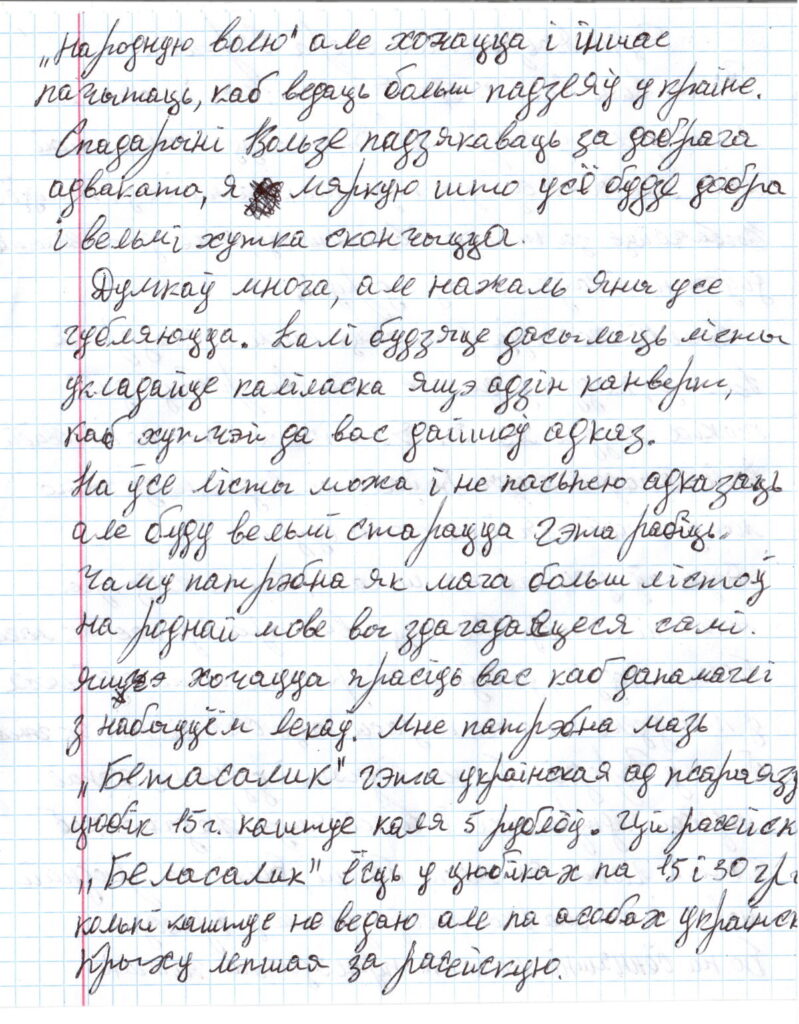 „Народную волю" але хочацца і іншае
пачытаць, каб ведаць больш падзеяў у краіне.
Спадарыні Вользе падзякаваць за добрага
адваката, я мяркую што усё будзе добра
і вельмі хутка скончыцца.
Думкаў многа, але нажаль яны усе
губляюцца. Калі будзяце дасылаць лісты
укладайце калі ласка яшэ адзін канверт,
каб хутчэй да вас дайшоў адказ.
На ўсе лісты можа і не пасьпею адказаць
але буду вельмі старацца гэта рабіць.
Чаму патрэбна як мага больш лістоў
на роднай мове вы здагадаецеся самі.
яшчэ хочацца прасіць вас каб дапамаглі
з набыццём лекаў. Мне патрэбна мазь
„Бетасалик" гэта украінская ад псарыяз
цюбік 15г. каштуе каля 5 рублёў. Ці расейск
„Беласалик" ёсць у цюбіках па 15 і 30 гр.
колькі каштуе не ведаю але па асобах украінск
крыху лепшая за расейскую.